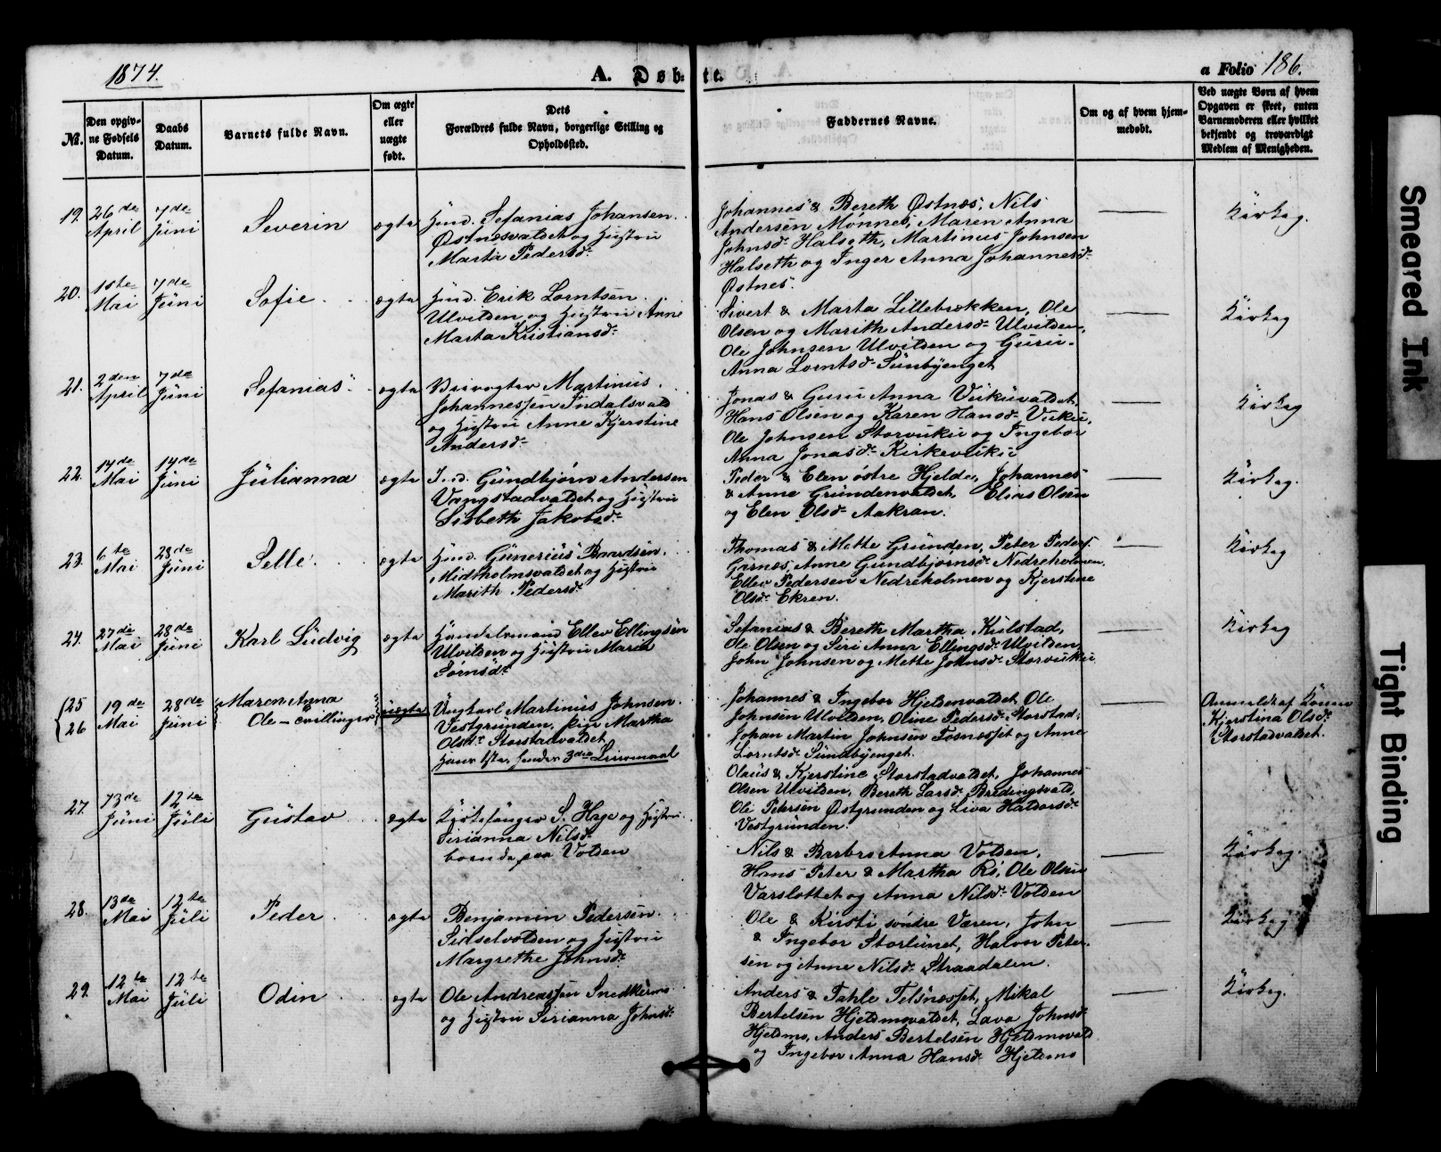 1874.
A. Døbte.
a Folio 186.
№.
Den opgivne Fødsels Datum.
Daabs Datum.
Barnets fulde Navn.
Om ægte eller uægte født.
Dets Forældres fulde Navn, borgerlige Stilling og Opholdssted.
Faddernes Navne.
Om og af hvem hjemmedøbt.
Ved uægte Børn af hvem Opgaven er skeet, enten Barnemoderen eller hvilket bekjendt og troværdigt Medlem af Menigheden.
19. 26de April 7de Juni Severin ægte Hmd. Sefanias Johansen
Østnesvaldet og Hustru
Marta Pedersd.
Johannes & Bereth Østnes, Nils
Andersen Mønnes, Maren Anna
Johnsd. Halseth, Martinus Johnsen
Halseth og Inger Anna Johannesd.
Østnes.
Kirkeg.
20. 10te Mai 7de Juni Sofie ægte Hmd. Erik Lorntsen
Ulvilden og Hustru Anne
Marta Kristiansd.
Sivert & Marta Lillebækken, Ole
Olsen og Marith Andersd. Ulvilden,
Ole Johnsen Ulvilden og Guru
Anna Lorntsd. Sundbyenget
Kirkeg
21. 2den April 7de Juni Sefanias ægte Martinus
Johannessen Indalsvald
og Hustru Anne Kjerstine
Andersd.
Jonas & Guru Anna Vukuvaldet,
Hans Olsen og Karen Hansd. Vuku,
Ole Johnsen Storvuku og Ingebor
Anna Jonasd. Kirkevuku
Kirkeg
22. 14de Mai 14de Juni Julianna ægte Ind. Gundbjørn Andersen
Vangstadvaldet og Hustru
Lisbeth Jakobsd.
Peder & Elen østre Hjelde, Johannes
& Anne Grundenvaldet, Elias Olsen
og Elen Olsd. Aakran.
Kirkeg.
23. 6te Mai 28de Juni Pelle ægte Hmd. Gunerius Baardsen
Midtholmsvaldet og Hustru
Marith Pedersd.
Thomas & Mette Grunden, Peter Peders.
Garnes, Anne Gundbjørnsd. Nedreholmen,
Ellev Pedersen Nedreholmen og Kjerstine
Olsd. Ekren.
Kirkeg
24. 27de Mai 28de Juni Karl Ludvig ægte Handelsmand Ellev Ellingsen
Ulvilden og Hustru Marit
Sørnsd.
Sefanias & Bereth Martha Kulstad,
Ole Olsen og Siri Anna Ellingsd. Ulvilden,
John Johnsen og Mette Johnsd. Storvuku
Kirkeg
25 26 19de Mai 28de Juni Maren Anna
Ole – tvillinger uægte Ungkarl Martinus Johnsen
Vestgrunden, pige Martha
Olsd. Storstadvaldet
3die Leiermaal
Johannes & Ingebor Hjeldenvaldet, Ole
Johnsen Ulvilden, Oline Pedersd. Storstad,
Johan Martin Johnsen Fosnæsset og Anne
Lorntsd. Sundbyenget.
Olaus & Kjerstine Storstadvaldet, Johannes
Olsen Ulvilden, Bereth Larsd. Bredingsvald,
Ole Petersen Østgrunden og Liva Haldorsd.
Vestgrunden.
Anmeldt af Konen
Kjerstina Olsd.
Storstadvaldet.
27. 13de Juni 12te Juli Gustav ægte Kirkesanger S. Hage og Hustru
Sirianna Nilsd.
boende paa Volden
Nils & Barbro Anna Volden,
Hans Peter & Martha Rø, Ole Olsen
Varslottet og Anna Nilsd. Volden
Kirkeg.
28. 13de Mai 12te Juli Peder ægte Benjamin Pedersen
Sidselvolden og Hustru
Margrethe Johnsd.
Ole & Kirsti søndre Væren, John
& Ingebor Storlunet, Halvor Peter-
sen og Anne Nilsd. Straadalen.
Kirkeg
29. 12te Mai 12te Juli Odin ægte Ole Andreassen Snedkermo
og Hustru Sirianna Johnsd.
Anders & Tahle Telsnæsset, Mikal
Bertelsen Hjelmovaldet, Lava Johnsd.
Hjelmo, Anders Bertelsen Hjelmovald
og Ingebor Anna Hansd. Hjelmo
Kirkeg.
Smeared Ink
Tight Binding